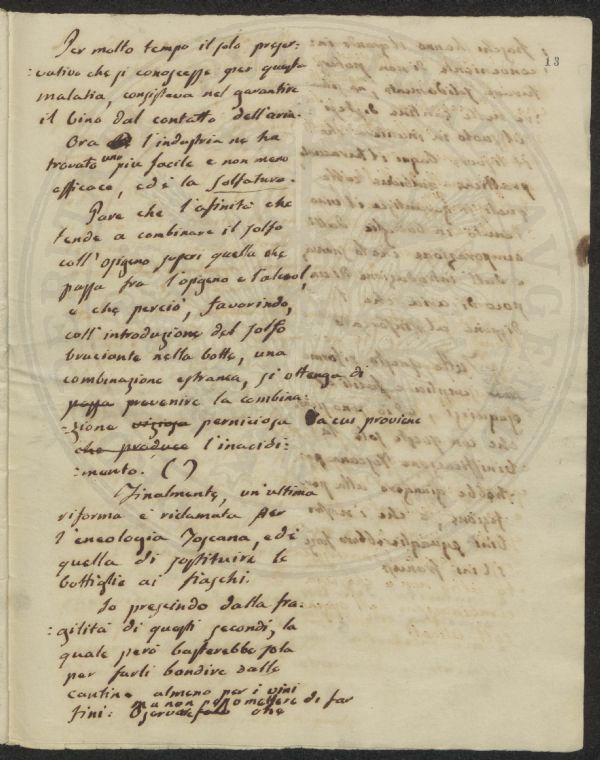 13
Per molto tempo il solo preser-
:vativo che si conoscesse per questa
malatia, consisteva nel garantire
il vino dal contatto dell'aria.
Ora l'industria ne ha
trovato uno piu facile e non meno
efficace, ed è la Solfatura.
Pare che l'afinità che
tende a combinare il solfo
coll'ossigeno superi quella che
passa fra l'ossigeno e l'alcool,
e che perciò, favorindo,
coll'introduzione del solfo
bruciante nella botte, una
combinazione estranea, si ottenga di
passa prevenire la combina:
:zione viziosa perniciosa da cui proviene
che produce l'inacidi:
:mento. ( )
Finalmente, un'ultima
riforma è riclamata per
l'eneologia Toscana, ed è
quella di sostituire le
bottiglie ai fiaschi.
Io prescindo dalla fra:
:gilità di questi secondi, la
quale però basterebbe sola
per farli bandire dalle
cantine almeno per i vini
fini: ma non posso omettere di far
Osservare che